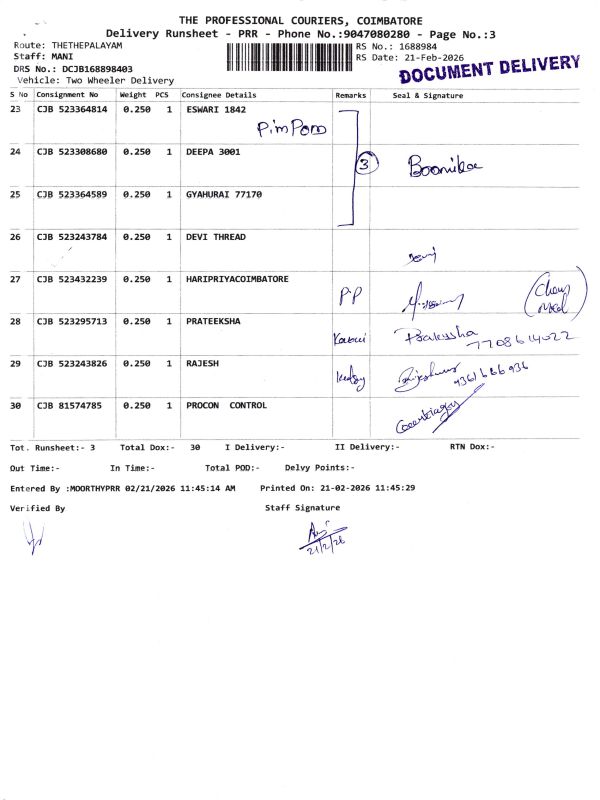 THE PROFESSIONAL COURIERS, COIMBATORE
Delivery Runsheet - PRR - Phone No.:9047080280 - Page No.:3
Route: THETHEPALAYAM
RS No.: 1688984
Staff: MANI
RS Date: 21-Feb-2026
DRS No.: DCJB168898403
Vehicle: Two Wheeler Delivery
DOCUMENT DELIVERY
S No Consignment No Weight PCS Consignee Details Remarks Seal & Signature
23 CJB 523364814 0.250 1 ESWARI 1842
PimPom
24 CJB 523308680 0.250 1 DEEPA 3001
3
25 CJB 523364589 0.250 1 GYAHURAI 77170
26 CJB 523243784 0.250 1 DEVI THREAD
27 CJB 523432239 0.250 1 HARIPRIYACOIMBATORE
PP
28 CJB 523295713 0.250 1 PRATEEKSHA
7708614022
29 CJB 523243826 0.250 1 RAJESH
9361686936
30 CJB 81574785 0.250 1 PROCON CONTROL
Tot. Runsheet:- 3 Total Dox:- 30 I Delivery:- II Delivery:- RTN Dox:-
Out Time:- In Time:- Total POD:- Delvy Points:-
Entered By :MOORTHYPRR 02/21/2026 11:45:14 AM Printed On: 21-02-2026 11:45:29
Verified By Staff Signature
21/2/26